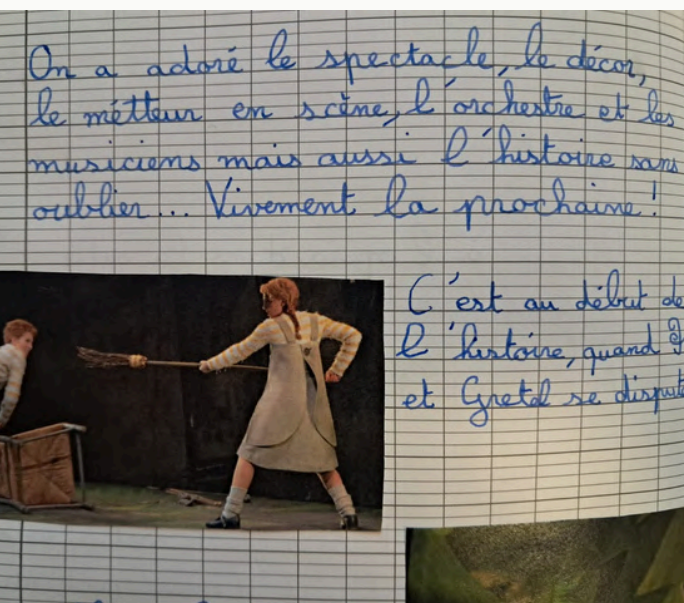 On a adoré le spectacle, le décor,
le métteur en scène, l'orchestre et les
musiciens mais aussi l'histoire sans
oublier... Vivement la prochaine !
C'est au début de
l'histoire, quand
et Gretel se disput